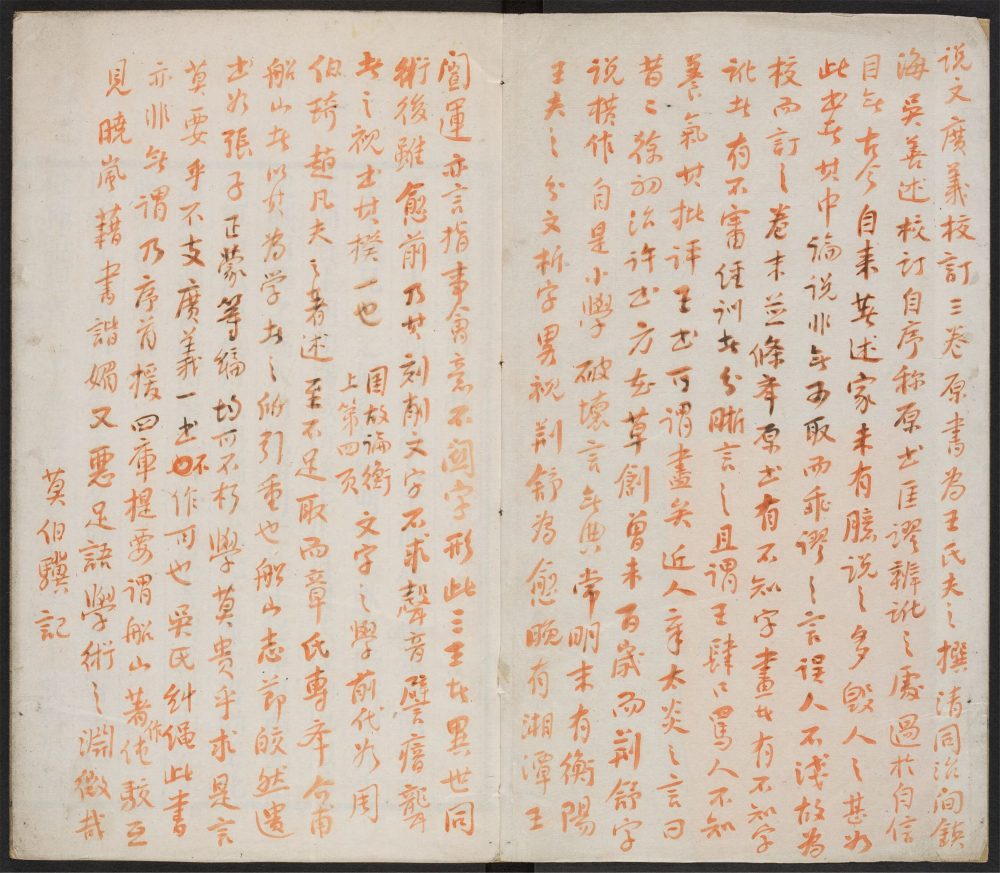 说文广義校訂三卷原書為王氏夫之撰清同治间鎮
海吳善述校訂自序称原书匡謬辨訛之處過於自信
目無古今自来著述家未有臆说之多毁人之甚如
此书者其中論说非無可取而乖謬之言误人不浅故為
校而訂之卷末並條舉原书有不知字畫者有不知字
訛者有不審経訓者分晰言之且謂王肆口罵人不知
養氣其批评王书可谓盡矣近人章太炎之言曰
昔二徐初治许书方在草創曾未百歲而荆舒字
说横作自是小學破壞言無典常明末有衡陽
王夫之分文析字男視荆舒為愈晚有湘潭王
闓運亦言指事會意不關字形此三王者異世同
術後雖愈前乃其刻削文字不求聲音譬瘖聾
者之視书其揆一也 国故論衡上第四页 文字之學前代如周
伯琦趙凡夫之著述至不足取而章氏專舉介甫
船山者以其為学者之所引重也船山志節皎然遗
书如張子正蒙等編均可不朽學莫贵乎求是言
莫要乎不支廣義一书不作可也吳氏纠绳此書
亦非無谓乃序首援四庫提要谓船山著作佗駁互
見曉嵐藉書諧媚又悪足語學術之淵微哉
莫伯驥記